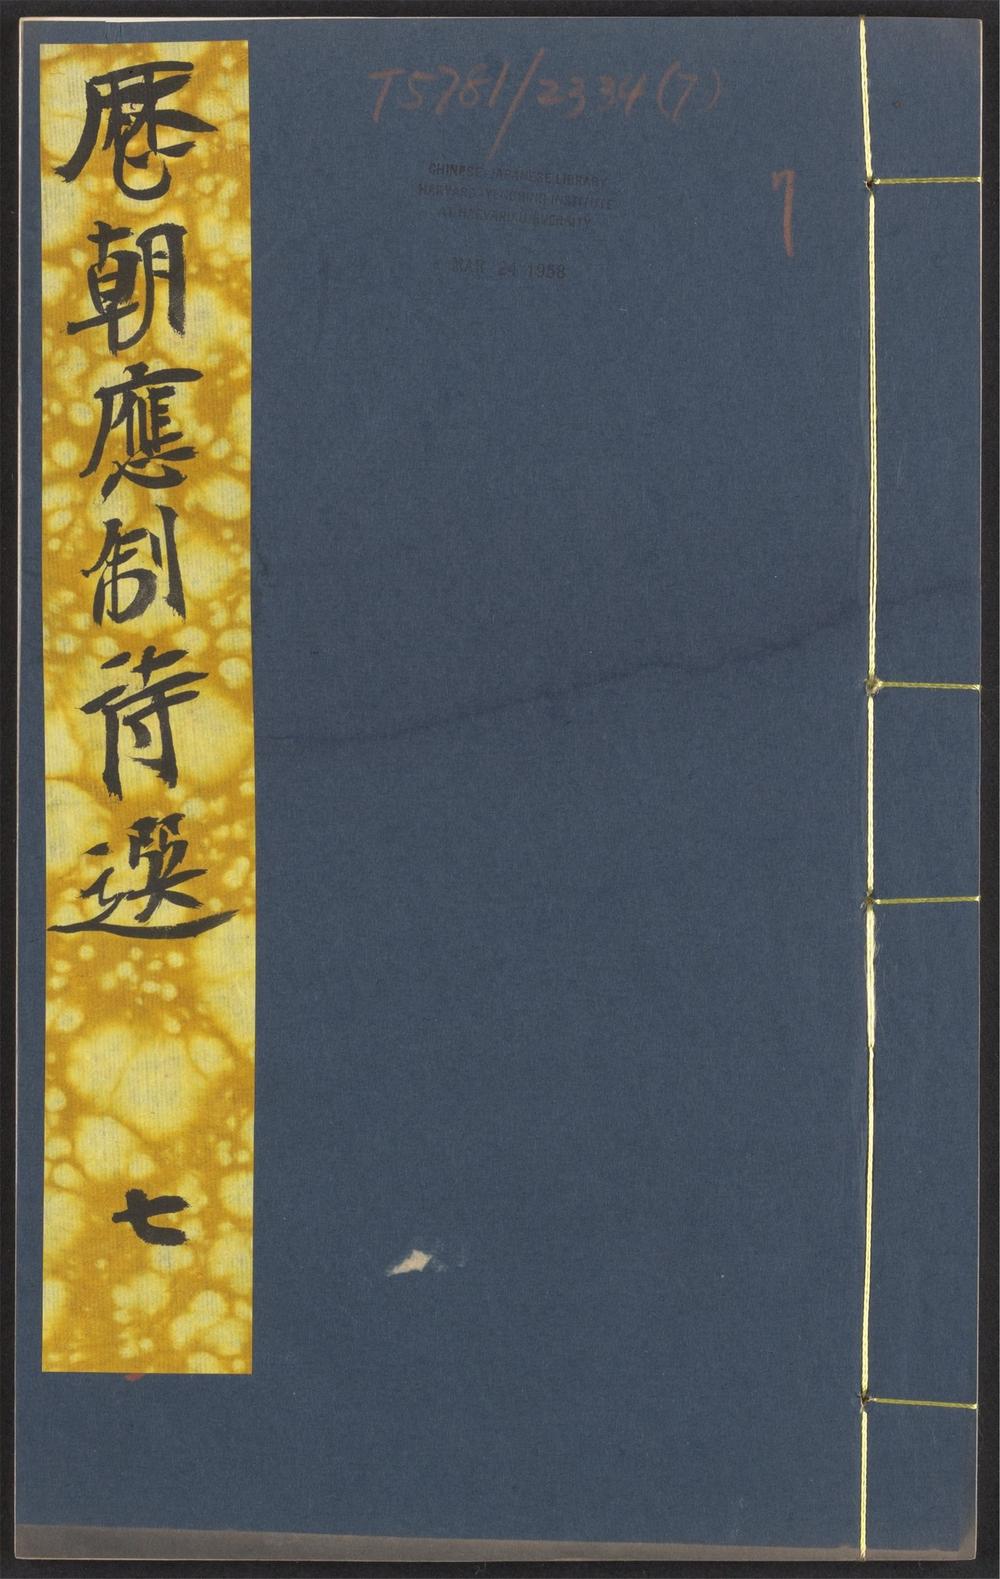 歷朝應制詩選
七
T5781/2334(7)
CHINESE-JAPANESE LIBRARY
HARVARD-YENCHING INSTITUTE
AT HARVARD UNIVERSITY
MAR 24 1958
7